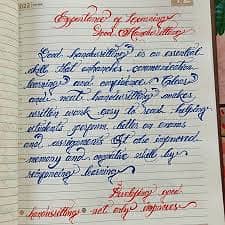 2022
Experience of Learning
Good Handwriting
Good handwriting is an essential
skills that enhances communication
learning and confidence. Clear
and neat handwriting makes
written work easy to read helping
students perform better on exams
and assignments. It also improved
memory and cognitive skills by
reinforcing learning
Developing good
handwriting not only improves